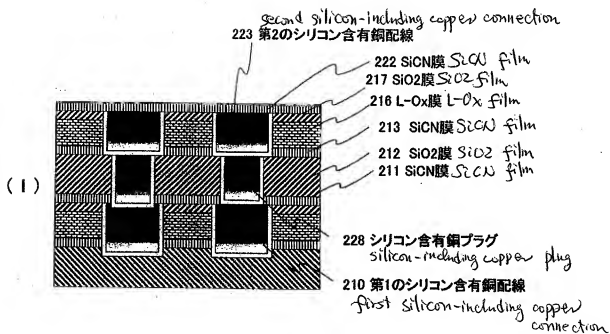 second silicon-including copper connection
223 第2のシリコン含有銅配線
222 SiCN膜 SiCN film
217 SiO2膜 SiO2 film
216 L-Ox膜 L-Ox film
213 SiCN膜 SiCN film
212 SiO2膜 SiO2 film
211 SiCN膜 SiCN film
(1)
228 シリコン含有銅プラグ
silicon-including copper plug
210 第1のシリコン含有銅配線
first silicon-including copper
connection